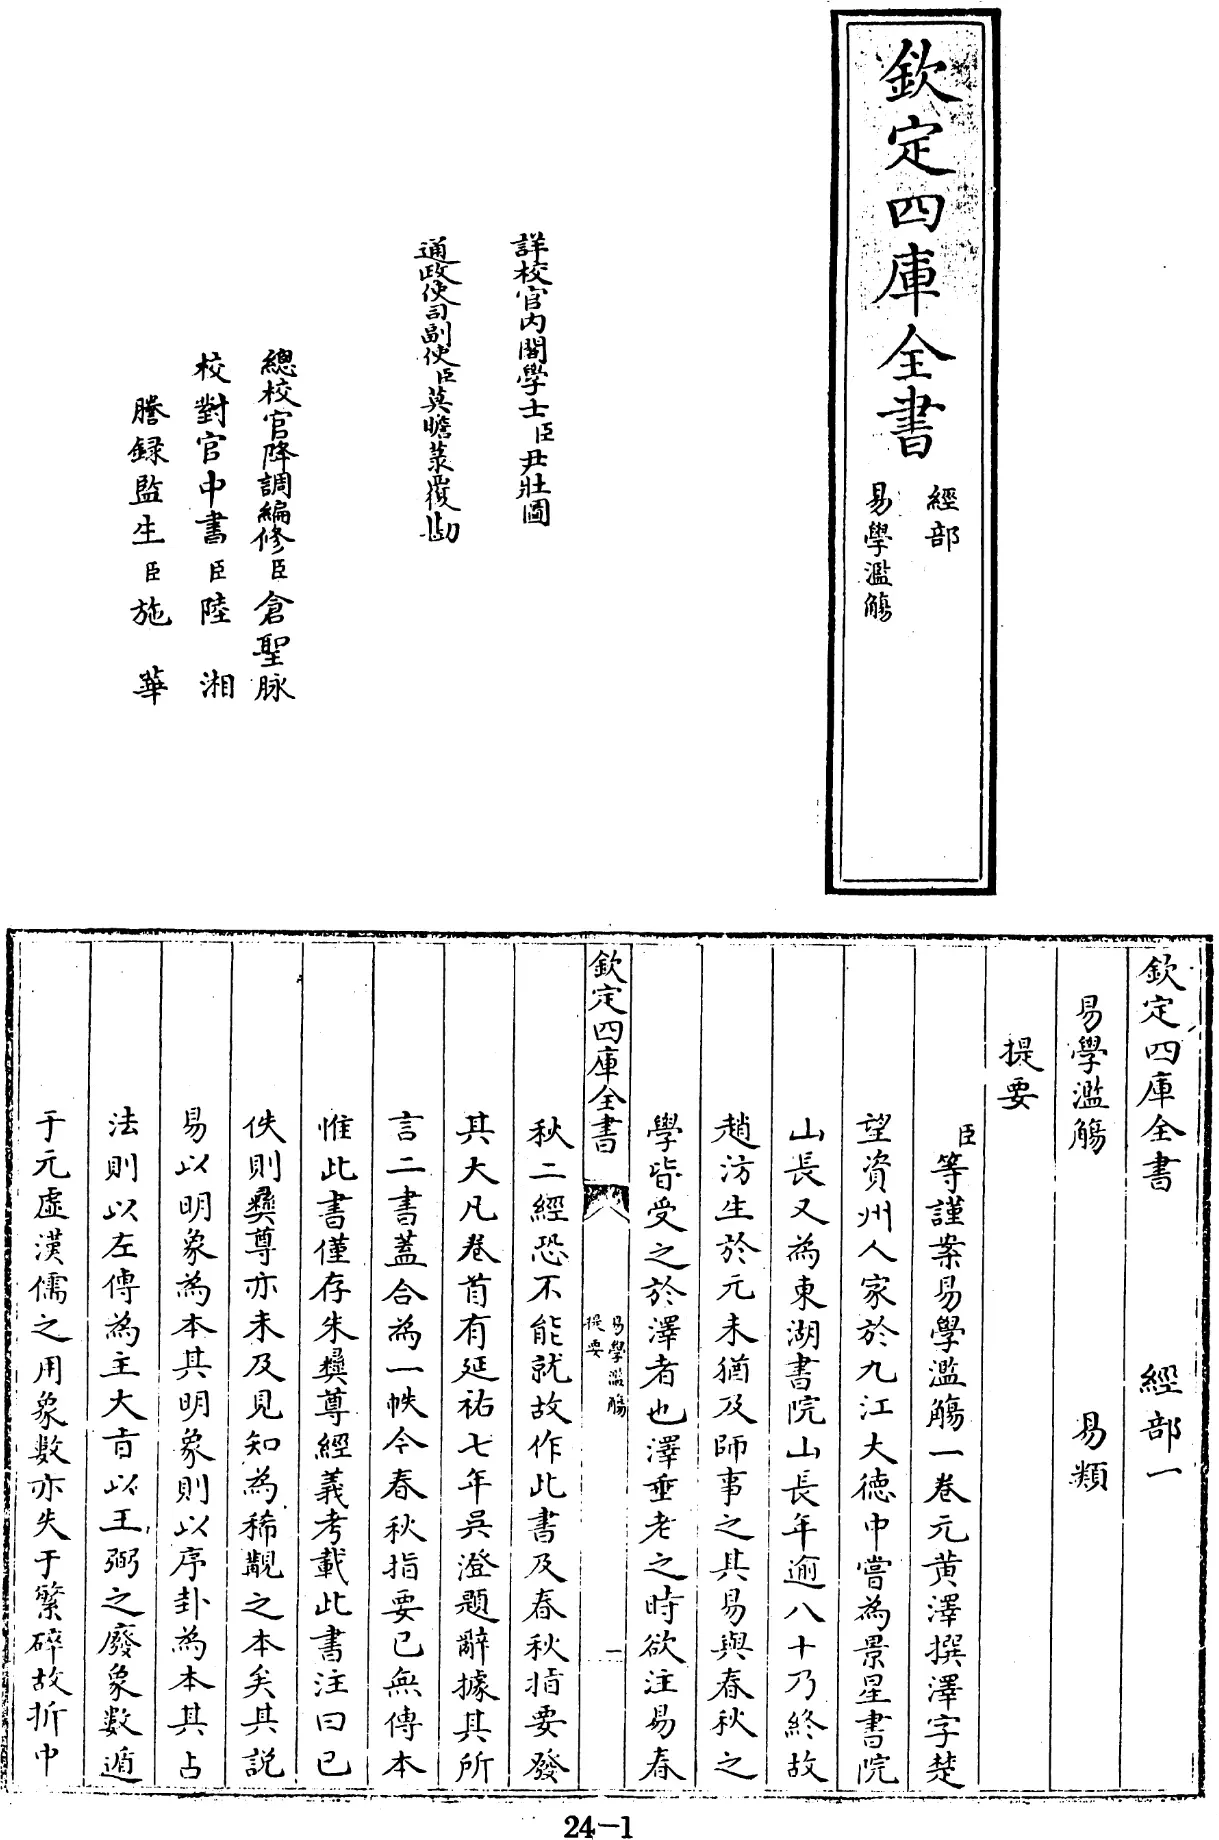 欽定四庫全書
經部
易學濫觴
詳校官內閣學士臣尹壯圖
通政使司副使臣莫瞻菉覆勘
總校官降調編修臣倉聖脉
校對官中書臣陸湘
謄録監生臣施華
欽定四庫全書 經部一
易學濫觴 易類
提要
臣等謹案易學濫觴一卷元黄澤撰澤字楚
望資州人家於九江大德中嘗為景星書院
山長又為東湖書院山長年逾八十乃終故
趙汸生於元末猶及師事之其易與春秋之
學皆受之於澤者也澤垂老之時欲注易春
欽定四庫全書 易學濫觴 提要 一
秋二經恐不能就故作此書及春秋指要發
其大凡卷首有延祐七年吳澄題辭據其所
言二書蓋合為一帙今春秋指要已無傳本
惟此書僅存朱彝尊經義考載此書注曰已
佚則彝尊亦未及見知為稀覯之本矣其說
易以明象為本其明象則以序卦為本其占
法則以左傳為主大㫖以王弼之廢象數遁
于元虛漢儒之用象數亦失于繁碎故折中
24-1